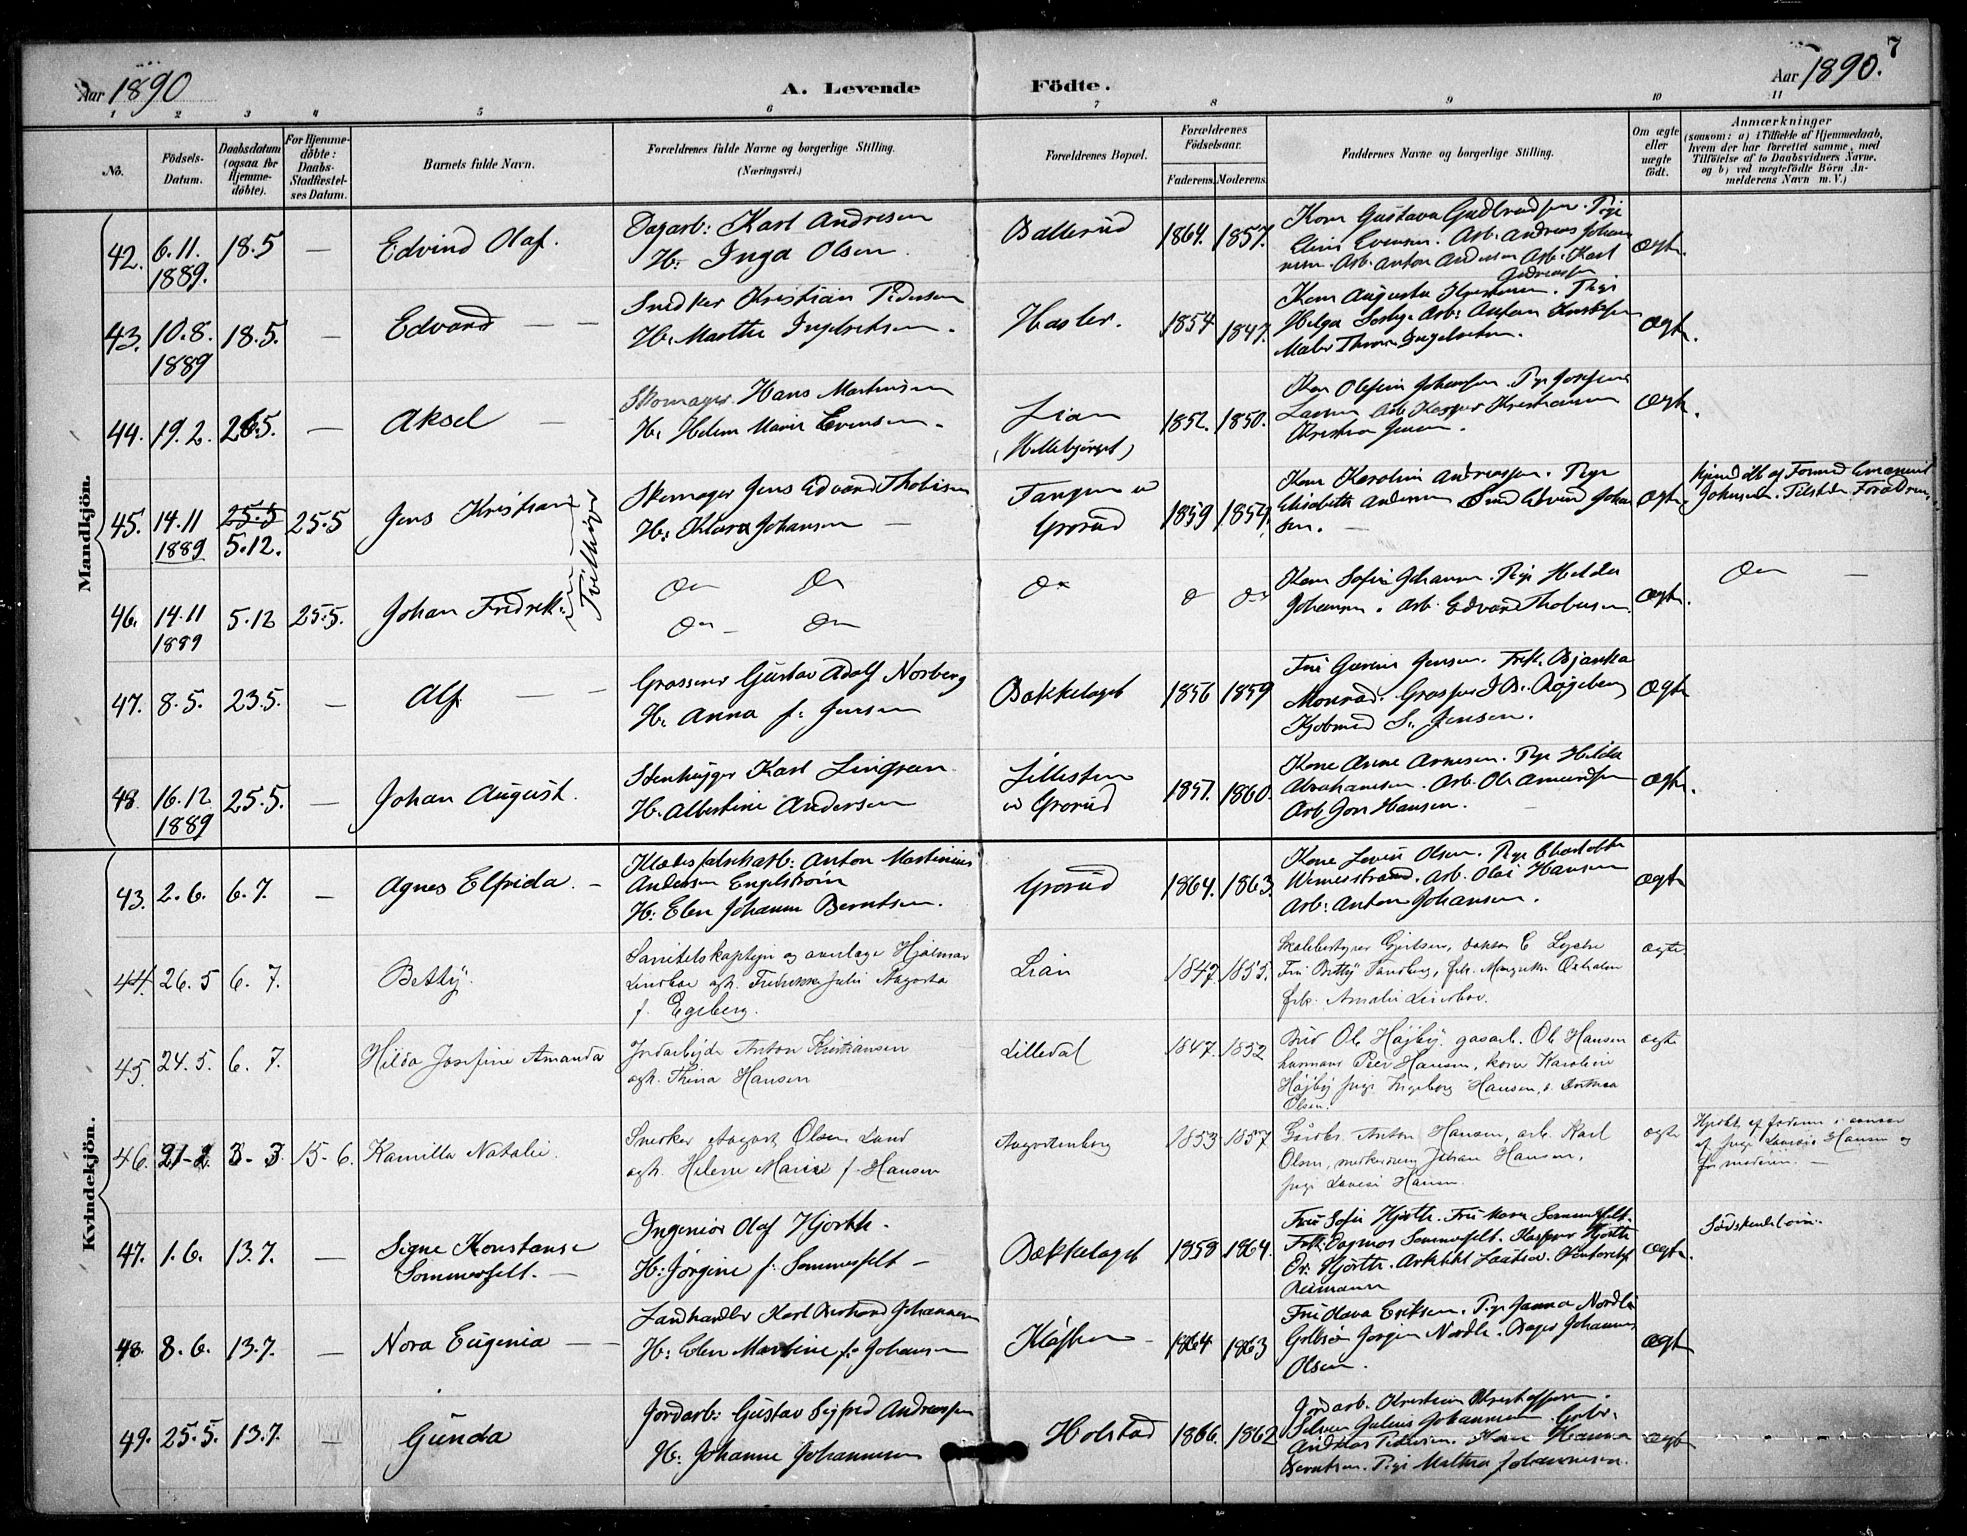 Aar 1890
A. Levende
Födte.
Aar 1890.
7
1 2 3 4 5 6 7 8 9 10 11
No.
Födsels-Datum.
Daabsdatum (ogsaa for Hjemmedöbte).
For Hjemmedöbte: Daabs-Stadfæstelses Datum.
Barnets fulde Navn.
Forældrenes fulde Navne og borgerlige Stilling.
(Næringsvei.)
Forældrenes Bopæl.
Forældrenes Födselsaar.
Faderens. Moderens.
Faddernes Navne og borgerlige Stilling.
Om ægte eller uægte födt.
Anmærkninger
(saasom: a) i Tilfælde af Hjemmedaab, hvem der har forrettet samme, med Tilföielse af to Daabsvidners Navne, og b) ved uægtefödte Börn Anmelderens Navn m. V.)
Mandkjön.
42. 6.11 1889. 18.5 — Edvind Olaf.
Dagarb: Karl Andresen
H: Inga Olsen
Ballerud 1864. 1857.
Kone Gustava Gudbrandsen. Pige
Arb. Andreas Johan
nesen. Arb. Anton Andersen Arb. Karl
Andreassen
ægte.
43. 10.8. 1889 18.5. — Edvard — —
Snedker Kristian Pedersen
H. Marthe Ingebretsen.
Hasler. 1854 1847.
Kone Augusta . Pige
Helga . Arb: Anton
Maler Ingebretsen.
ægte.
44. 19.2. 26.5. — Aksel —
Skomager. Hans Martinsen
H. Helene Marie Evensen.
Lian
(Hellebjerget)
1852. 1850.
Kone Johansen. Pige Josefine
Larsen Arb. Kasper Kristiansen
ægte.
45. 14.11 1889 25.5 5.12. 25.5 Jens Kristian
Tvillinger
Skomager Jens Edvard Thobisen
H: Klara Johansen —
Tangen v
Grorud
1859 1859.
Kone Karoline Andreassen. Pige
Elisabeth Andersen Johan
sen. —
ægte.
Hjemdöbt af Formd Emanuel
Johansen. Tilstede: Forældrene.
46. 14.11 1889 5.12 25.5. Johan Fredrik.
Do Do
Do — Do
Do Do Do
Kone Sofie Johansen. Pige Hilda
Johansen. Arb. Edvard Thobisen.
ægte.
Do —
47. 8.5. 23.5. — Alf. — —
Grosserer Gustav Adolf Norberg
H: Anna f: Jensen
Bækkelaget 1856 1859
Fru Jensen. Frk. Bjanka
Monrad. Grosser J. B. Rögeberg
Kjöbmd S. Jensen.
ægte
48. 16.12 1889 25.5. — Johan August.
Stenhugger Karl Lingren
H. Albertine Andersen
Lillesten
v Grorud
1857. 1860.
Kone Anne Arnesen. Pige Hilda
Abrahamsen. Arb. Ole Amundsen
Arb. Jon Hansen.
ægte.
Kvindekjön.
43. 2.6. 6.7. — Agnes Elfrida. —
Klædesfabrikarb: Anton Martinius
Andersen Engelström
H: Elen Johanne Berntsen.
Grorud 1864. 1863.
Kone Lovise Olsen. Pige Charlotte
Wennestrand. Arb. Olai Hansen
Arb: Anton Johansen.
ægte
44. 26.5 6. 7. Betty.
Sanitetskaptejn og overlæge Hjalmar
Leierboe agh. Fredrikke Julie Augusta
f. Egeberg.
Lian 1847. 1855.
Skolebestyrer Gjertsen, doktor E
Fru Betty Sandberg, frk. Margrethe
frk. Amalie Leierboe.
ægte.
45. 24.5. 6. 7. Hilda Josefine Amanda
Jordarbejder Anton Kristiansen
agh. Thina Hansen
Lilledal 1847. 1852
Ole Höjby. gasarb. Ole Hansen
husmand Peer Hansen, kone Karoline
Höjby pige Ingeborg Hansen,
Olsen.
ægte
46. 21-2. 3-3. 15-6. Kamilla Natalie.
Snekker August Olsen Lund
agh. Helene Marie f. Hansen
Augustenborg 1853. 1857.
Gårdbr. Anton Hansen, arb. Karl
Olsen, snekkersvend Johan Hansen,
pige Lovise Hansen.
ægte
Hjdöbt af faderen i nærvær
af pige Lovise Hansen og
f moderen. —
47. 1.6. 13.7. — Signe Konstanse
Sommerfelt. —
Ingeniör Olaf Hjorth.
H: Jörgine f: Sommerfelt —
Bækkelaget 1858 1864.
Fru Sofie Hjorth. Fru Sommerfelt.
Frk: Dagmar Sommerfelt. Kasserer Hjorth
Dr: Hjorth. Arkitekt . Kontorchef
Reimann
ægte.
Södskendebörn.
48. 8.6. 13.7. — Nora Eugenia — —
Landhandler Karl Bernhard Johannesen
H: Elen Martine f: Johansen
Kløften — 1864 1863
Fru Olava Eriksen. Pige Janna Nordli
Jörgen Nordli. Bager Johannes
Olsen.
ægte
49. 25.5. 13.7. — Gunda
Jordarb: Gustav Sigfred Andreassen
H: Johanne Johannesen
Holstad 1866. 1862
Jordarb. Kristian Kristoffersen.
Julius Johannesen. Gaardbr.
Andreas Pettersen. Kone Hanna
Berntsen. Pige Mathea Johannesen.
ægte